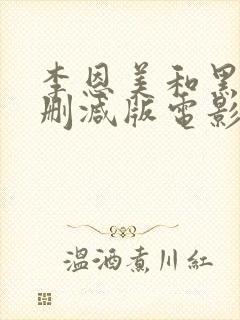 李恩美和黑
删减版电影
温酒煮川紅